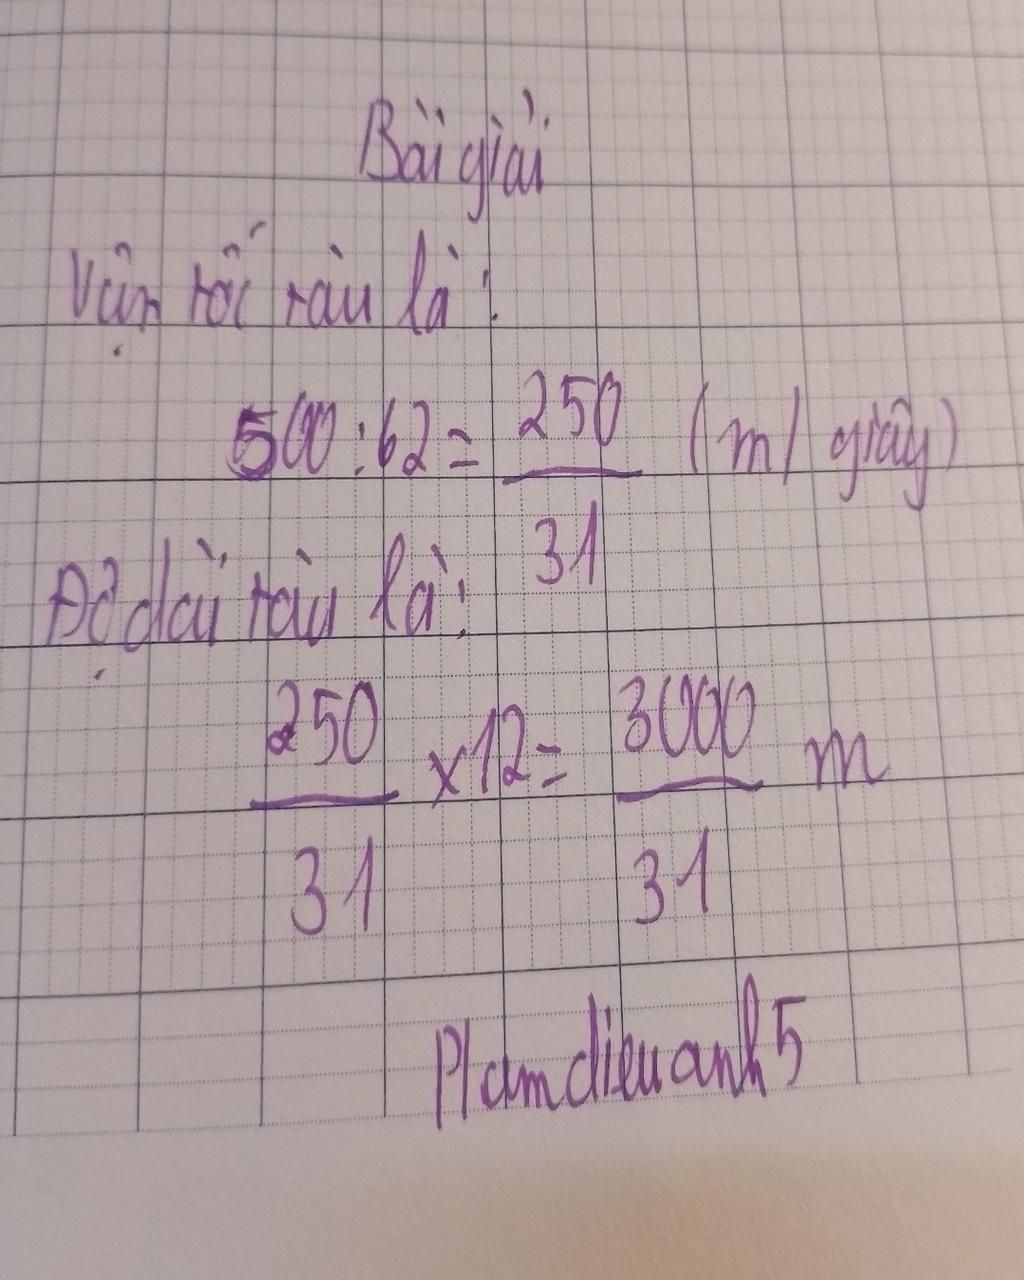 Bài giải
Vận tốc tàu là:
500 : 62 = 250/31 (m/giây)
Độ dài tàu là:
250/31 x 12 = 3000/31 m
Phamdieuanh5